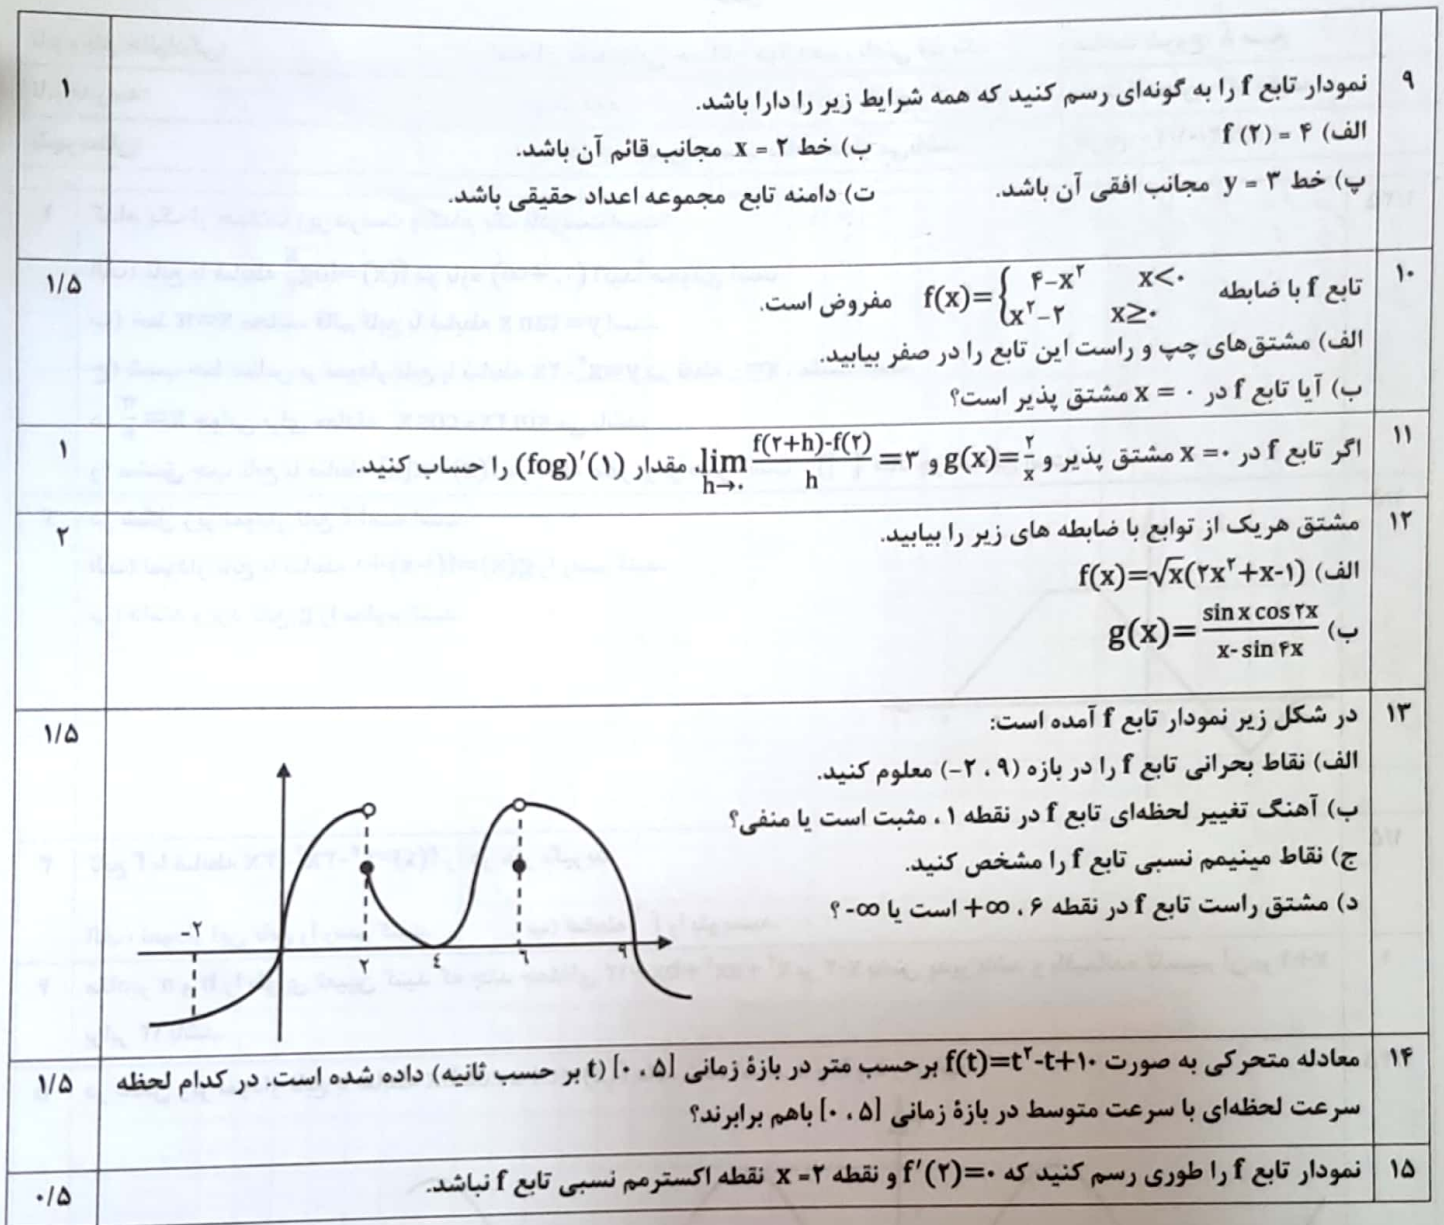 ۹ نمودار تابع f را به گونه‌ای رسم کنید که همه شرایط زیر را دارا باشد. ۱
الف) f (۲) = ۴ ب) خط x = ۲ مجانب قائم آن باشد.
پ) خط y = ۳ مجانب افقی آن باشد. ت) دامنه تابع مجموعه اعداد حقیقی باشد.
۱۰ تابع f با ضابطه f(x)={ ۴-x² x<۰ ; x²-۲ x≥۰ مفروض است. ۱/۵
الف) مشتق‌های چپ و راست این تابع را در صفر بیابید.
ب) آیا تابع f در x = ۰ مشتق پذیر است؟
۱۱ اگر تابع f در x =۰ مشتق پذیر و g(x)=۲/x و lim h→۰ (f(۲+h)-f(۲))/h =۳ مقدار (fog)′(۱) را حساب کنید. ۱
۱۲ مشتق هر یک از توابع با ضابطه های زیر را بیابید. ۲
الف) f(x)=√x(۲x²+x-۱)
ب) g(x)= (sin x cos ۲x)/(x- sin ۴x)
۱۳ در شکل زیر نمودار تابع f آمده است: ۱/۵
الف) نقاط بحرانی تابع f را در بازه (۹ ، ۲-) معلوم کنید.
ب) آهنگ تغییر لحظه‌ای تابع f در نقطه ۱ ، مثبت است یا منفی؟
ج) نقاط مینیمم نسبی تابع f را مشخص کنید.
د) مشتق راست تابع f در نقطه ۶ ، ∞+ است یا ∞-؟
-۲ ۲ ٤ ٦ ۹
۱۴ معادله متحرکی به صورت f(t)=t²-t+۱۰ برحسب متر در بازهٔ زمانی [۵ ، ۰] (t بر حسب ثانیه) داده شده است. در کدام لحظه ۱/۵
سرعت لحظه‌ای با سرعت متوسط در بازهٔ زمانی [۵ ، ۰] باهم برابرند؟
۱۵ نمودار تابع f را طوری رسم کنید که f′(۲)=۰ و نقطه x =۲ نقطه اکسترمم نسبی تابع f نباشد. ۰/۵